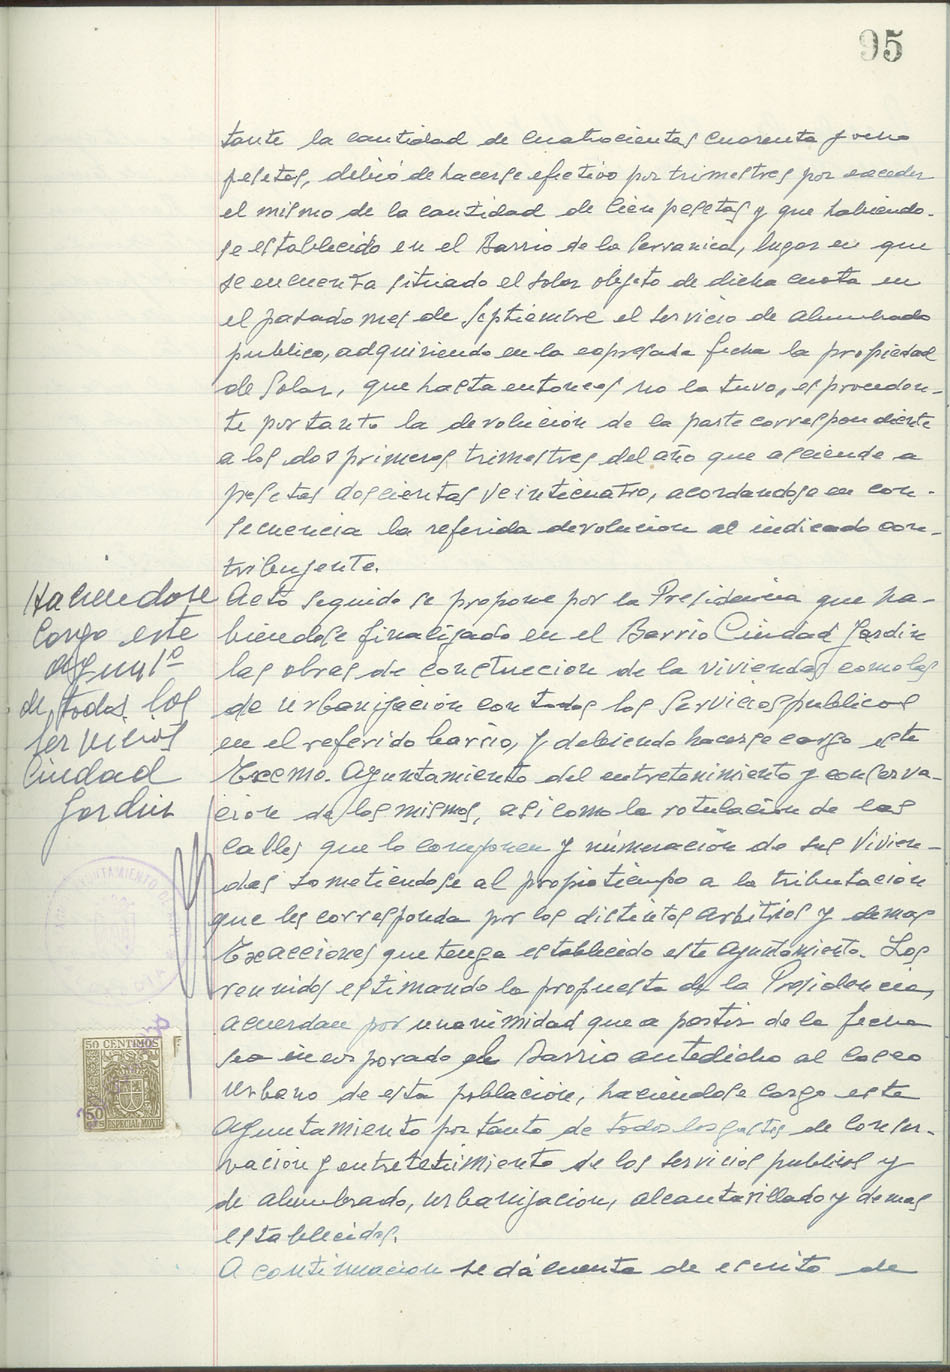 95
tante la cantidad de cuatrocientas cuarenta y ocho
pesetas, debió de hacerse efectivo por trimestres por exceder
el mismo de la cantidad de cien pesetas y que habiendo-
se establecido en el Barrio de la Serranica, lugar en que
se encuentra situado el solar objeto de dicha cuota en
el pasado mes de Septiembre el servicio de alumbrado
publico, adquiriendo en la expresada fecha la propiedad
de Solar, que hasta entonces no la tuvo, es proceden-
te por tanto la devolución de la parte correspondiente
a los dos primeros trimestres del año que asciende a
pesetas doscientas veinticuatro, acordandose en con-
secuencia la referida devolucion al indicado con-
tribuyente.
Haciendose
cargo este
Ayunt.º
de todos los
servicios
Ciudad
Jardin
Acto seguido se propone por la Presidencia que ha-
biendose finalizado en el Barrio Ciudad Jardin
las obras de construccion de la viviendas como las
de urbanización con todos los servicios publicos
en el referido barrio, y debiendo hacerse cargo este
Excmo. Ayuntamiento del entretenimiento y conserva-
ción de los mismos, asi como la rotulación de las
calles que lo componen y númeración de sus vivien-
das sometiendose al propio tiempo a la tributación
que les corresponda por los distintos arbitrios y demas
Exacciones que tenga establecido este Ayuntamiento. Los
reunidos estimando la propuesta de la Presidencia,
acuerdan por unanimidad que a partir de la fecha
sea incorporado el Barrio antedicho al casco
urbano de esta población, haciendose cargo este
Ayuntamiento por tanto de todos los gastos de conser-
vación y entretetimiento de los servicios publicos y
de alumbrado, urbanización, alcantarillado y demas
establecidos.
A continuacion se dá cuenta de escrito de
AYUNTAMIENTO
50 CENTIMOS
50
CTS
ESPECIAL MOVIL